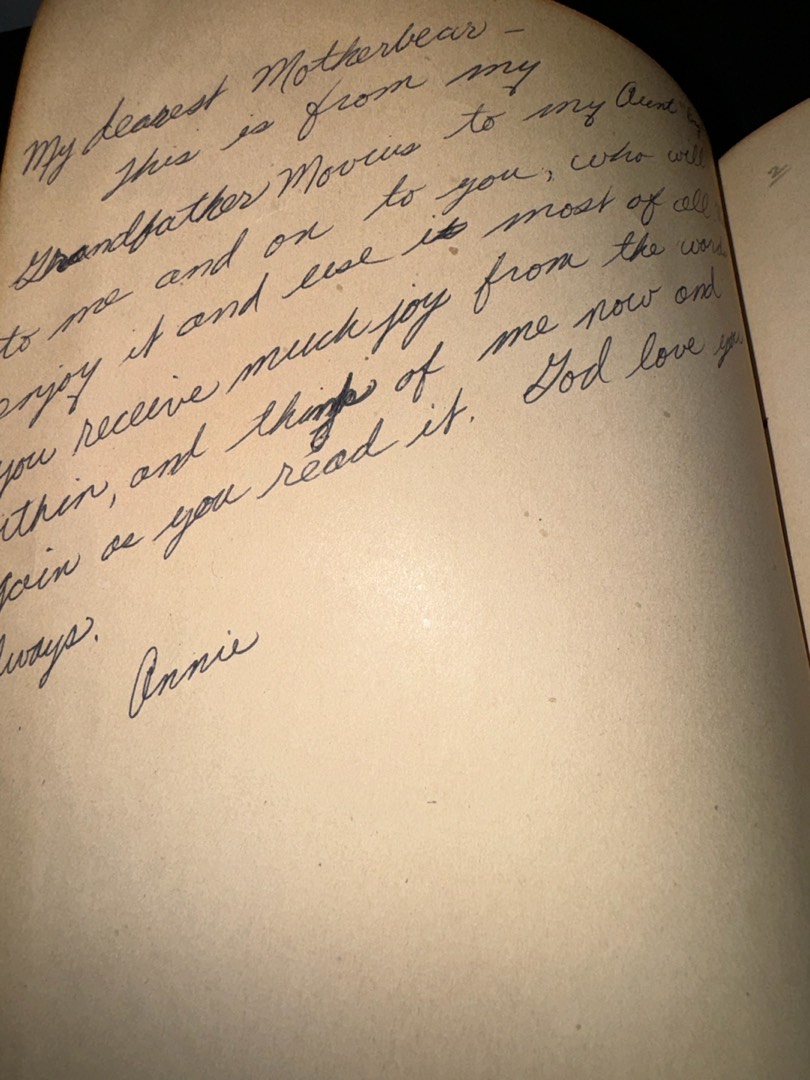 My dearest Motherbear –
This is from my
Grandfather Movius to my Aunt
to me and on to you, who will
enjoy it and use it most of all
you receive much joy from the
ithin, and think of me now and
gain as you read it. God love
lways.
Annie